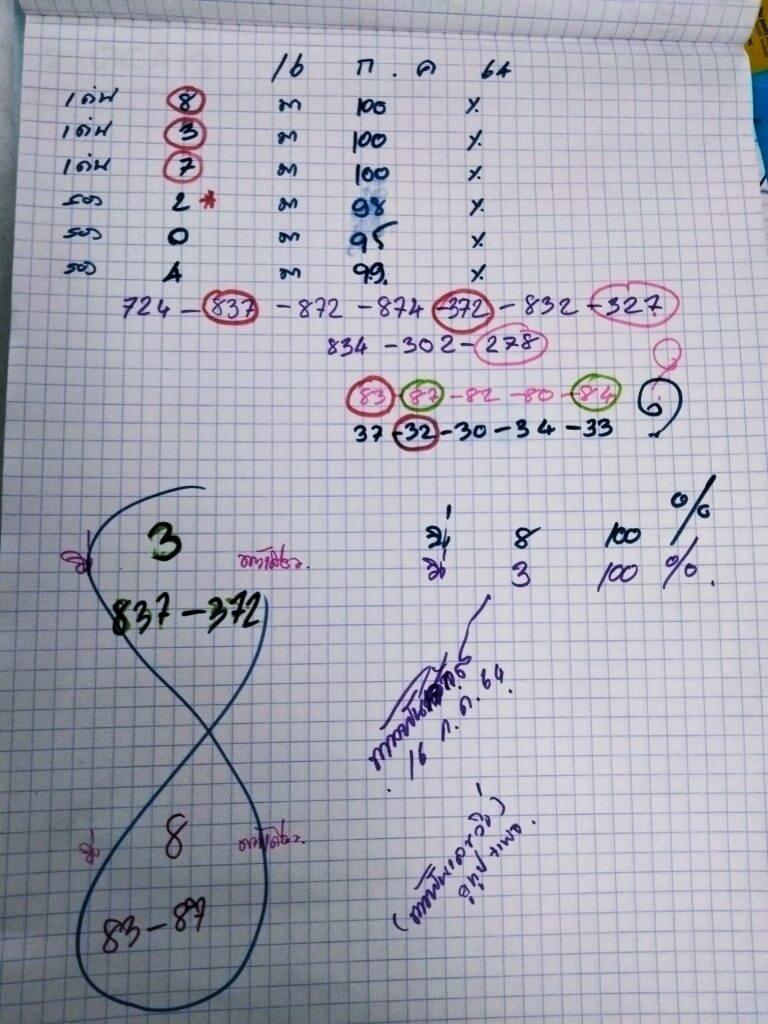 16 ก.ค 64
เด่น 8 มา 100 %
เด่น 3 มา 100 %
เด่น 7 มา 100 %
รอง 2 * มา 98 %
รอง 0 มา 95 %
รอง 4 มา 99 %
724 - 837 - 872 - 874 - 372 - 832 - 327
834 - 302 - 278
83 - 87 - 82 - 80 - 84
37 - 32 - 30 - 34 - 33
3
837 - 372
8 100 %
3 100 %
16 ก.ค. 64
8
83 - 87